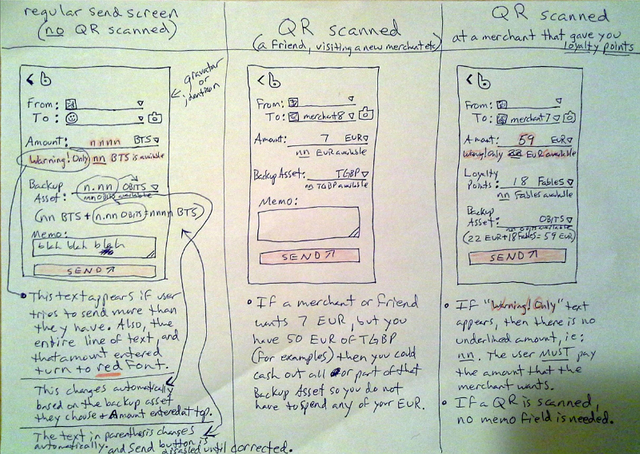 regular send screen
(no QR scanned)
< b
gravatar or identicon
From:
To:
Amount: nnnn BTS
Warning! Only nn BTS is available
Backup Asset: n.nn OBITS
nn OBITS available
(nn BTS + n.nn OBITS = nnnn BTS)
Memo:
blah blah blah
SEND
This text appears if user
tries to send more than
they have. Also, the
entire line of text, and
that amount entered
turn to red font.
This changes automatically
based on the backup asset
they choose + Amount entered at top.
The text in parenthesis changes
automatically. and Send button is
disabled until corrected.
QR scanned
(a friend, visiting a new merchant etc)
< b
From:
To: merchant8
Amount: 7 EUR
nn EUR available
Backup Asset: TGBP
nn TGBP available
Memo:
SEND
If a merchant or friend
wants 7 EUR, but you
have 50 EUR of TGBP
(for examples) then you could
cash out all or part of that
Backup Asset so you do not
have to spend any of your EUR.
QR scanned
at a merchant that gave you
loyalty points
< b
From:
To: merchant7
Amount: 59 EUR
Warning! Only 22 EUR available
Loyalty
Points: 18 Fables
nn Fables available
Backup
Asset: OBITS
(22 EUR + 18 Fables = 59 EUR)
SEND
If "Warning! Only" text
appears, then there is no
underlined amount, ie:
nn. The user MUST pay
the amount that the
merchant wants.
If a QR is scanned,
no memo field is needed.